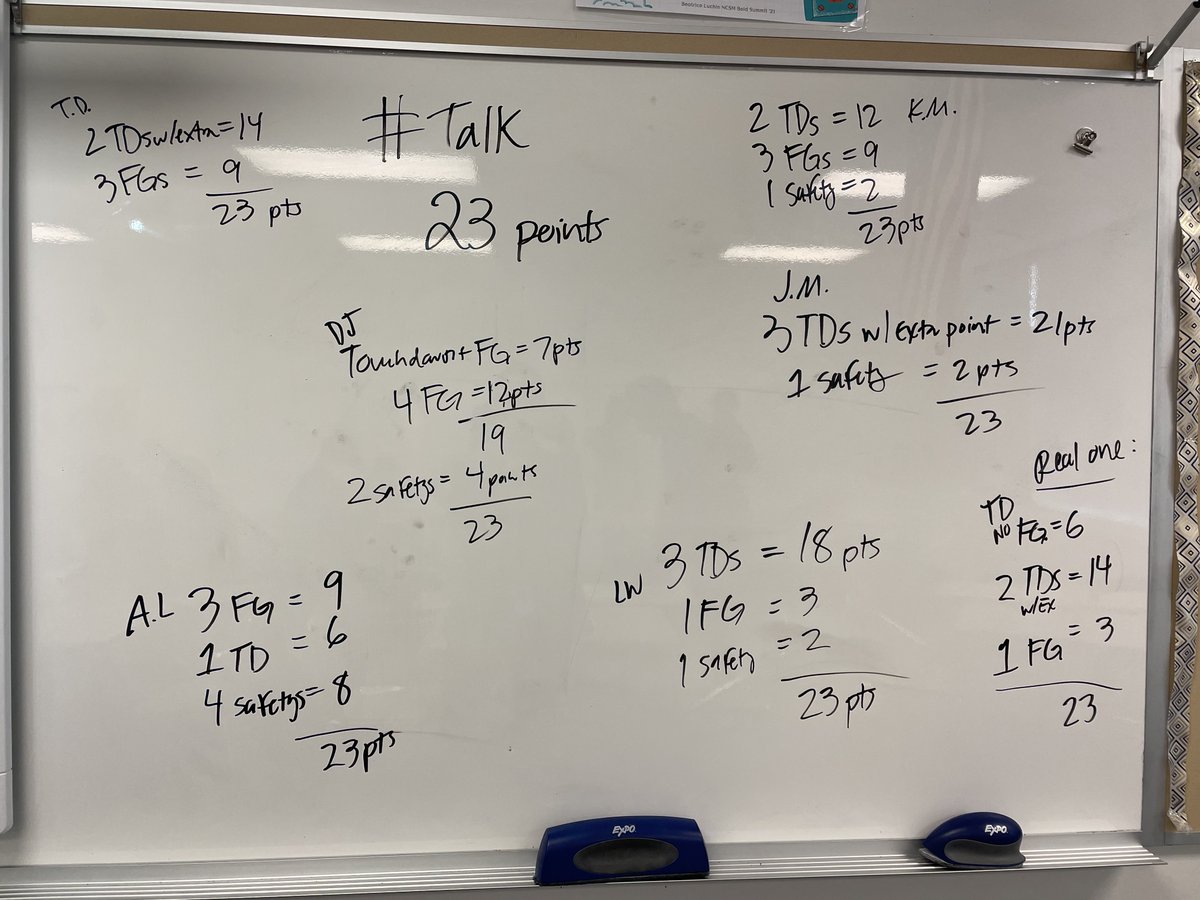 Beatrice Luchin NCSM Bold Summit '21
# Talk
23 points
T.D.
2 TDs w/extra = 14
3 FGs = 9
23 pts
2 TDs = 12 K.M.
3 FGs = 9
1 safety = 2
23 pts
DJ
Touchdown + FG = 7pts
4 FG = 12pts
19
2 safetys = 4 points
23
J.M.
3 TDs w/ extra point = 21pts
1 safety = 2 pts
23
A.L 3 FG = 9
1 TD = 6
4 safetys = 8
23pts
LW 3 TDs = 18 pts
1 FG = 3
1 safety = 2
23 pts
Real one:
TD
NO FG = 6
2 TDs = 14
w/Ex
1 FG = 3
23
EXPO
EXPO